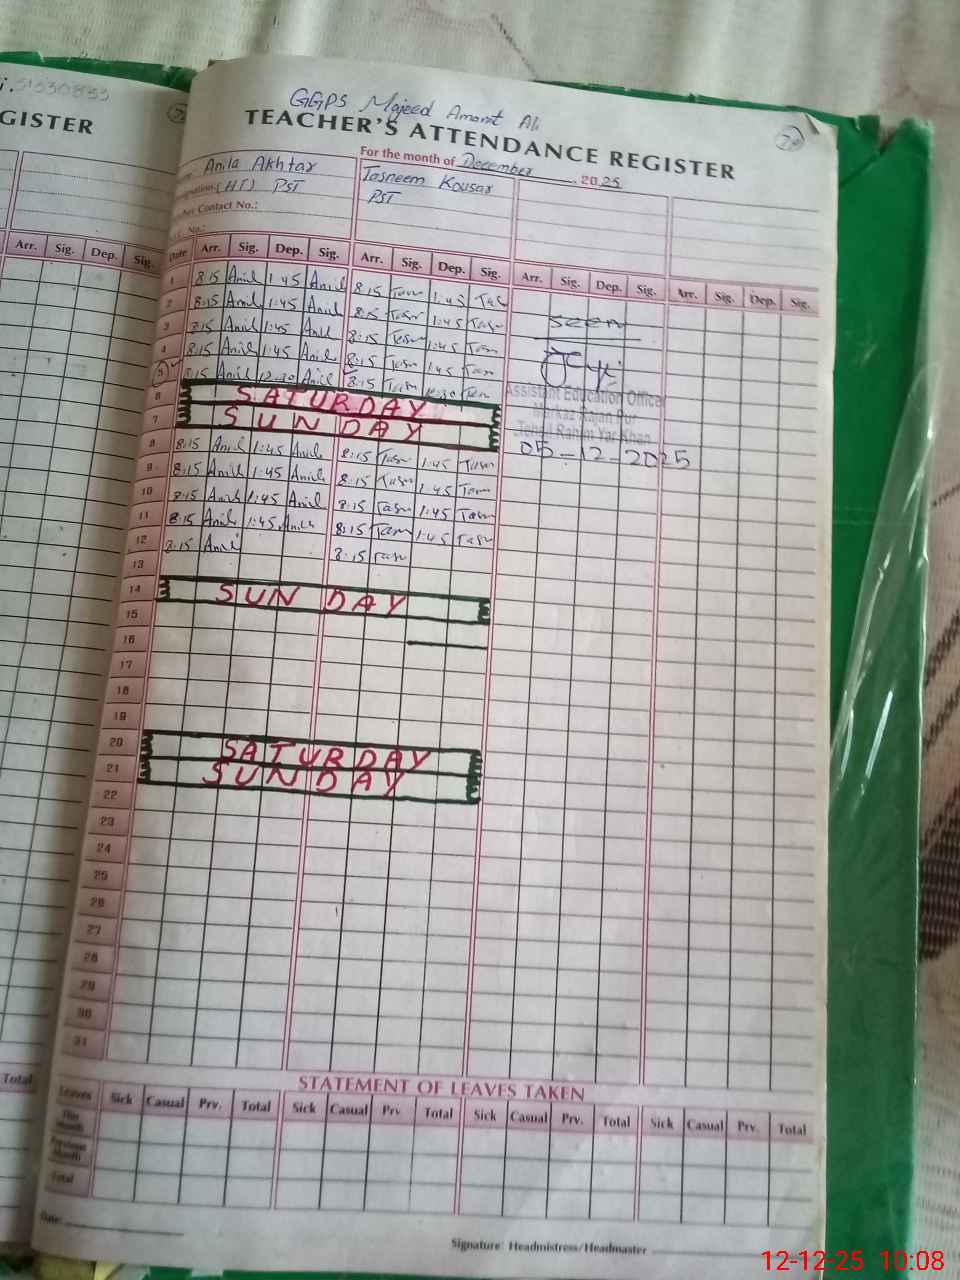 i.51530833
GISTER
Arr. Sig. Dep. Sig.
Total
GGPS Majeed Amanat Ali
TEACHER'S ATTENDANCE REGISTER
For the month of December 2025
Anila Akhtar Tasneem Kousar
(HT) PST PST
Contact No.:
Date Arr. Sig. Dep. Sig. Arr. Sig. Dep. Sig. Arr. Sig. Dep. Sig. Arr. Sig. Dep. Sig.
1 8:15 Anil 1:45 Anil 8:15 Tasn 1:45 Tas
2 8:15 Anil 1:45 Anil 8:15 Tasn 1:45 Tasn
3 8:15 Anil 1:45 Anil 8:15 Tasn 1:45 Tasn
4 8:15 Anil 1:45 Anil 8:15 Tasn 1:45 Tasn
5 8:15 Anil 12:30 Anil 8:15 Tasn 12:30 Tasn
6 SATURDAY
7 SUNDAY
8 8:15 Anil 1:45 Anil 8:15 Tasn 1:45 Tasn
9 8:15 Anil 1:45 Anil 8:15 Tasn 1:45 Tasn
10 8:15 Anil 1:45 Anil 8:15 Tasn 1:45 Tasn
11 8:15 Anil 1:45 Anil 8:15 Tasn 1:45 Tasn
12 8:15 Anil 8:15 Tasn
13
14 SUNDAY
15
16
17
18
19
20 SATURDAY
21 SUNDAY
22
23
24
25
26
27
28
29
30
31
Seen
Assistant Education Officer
Markaz Rajan Pur
Tehsil Rahim Yar Khan
05-12-2025
STATEMENT OF LEAVES TAKEN
Leaves Sick Casual Prv. Total Sick Casual Prv. Total Sick Casual Prv. Total Sick Casual Prv. Total
This month
Previous Month
Total
Date:
Signature: Headmistress/Headmaster
12-12-25 10:08